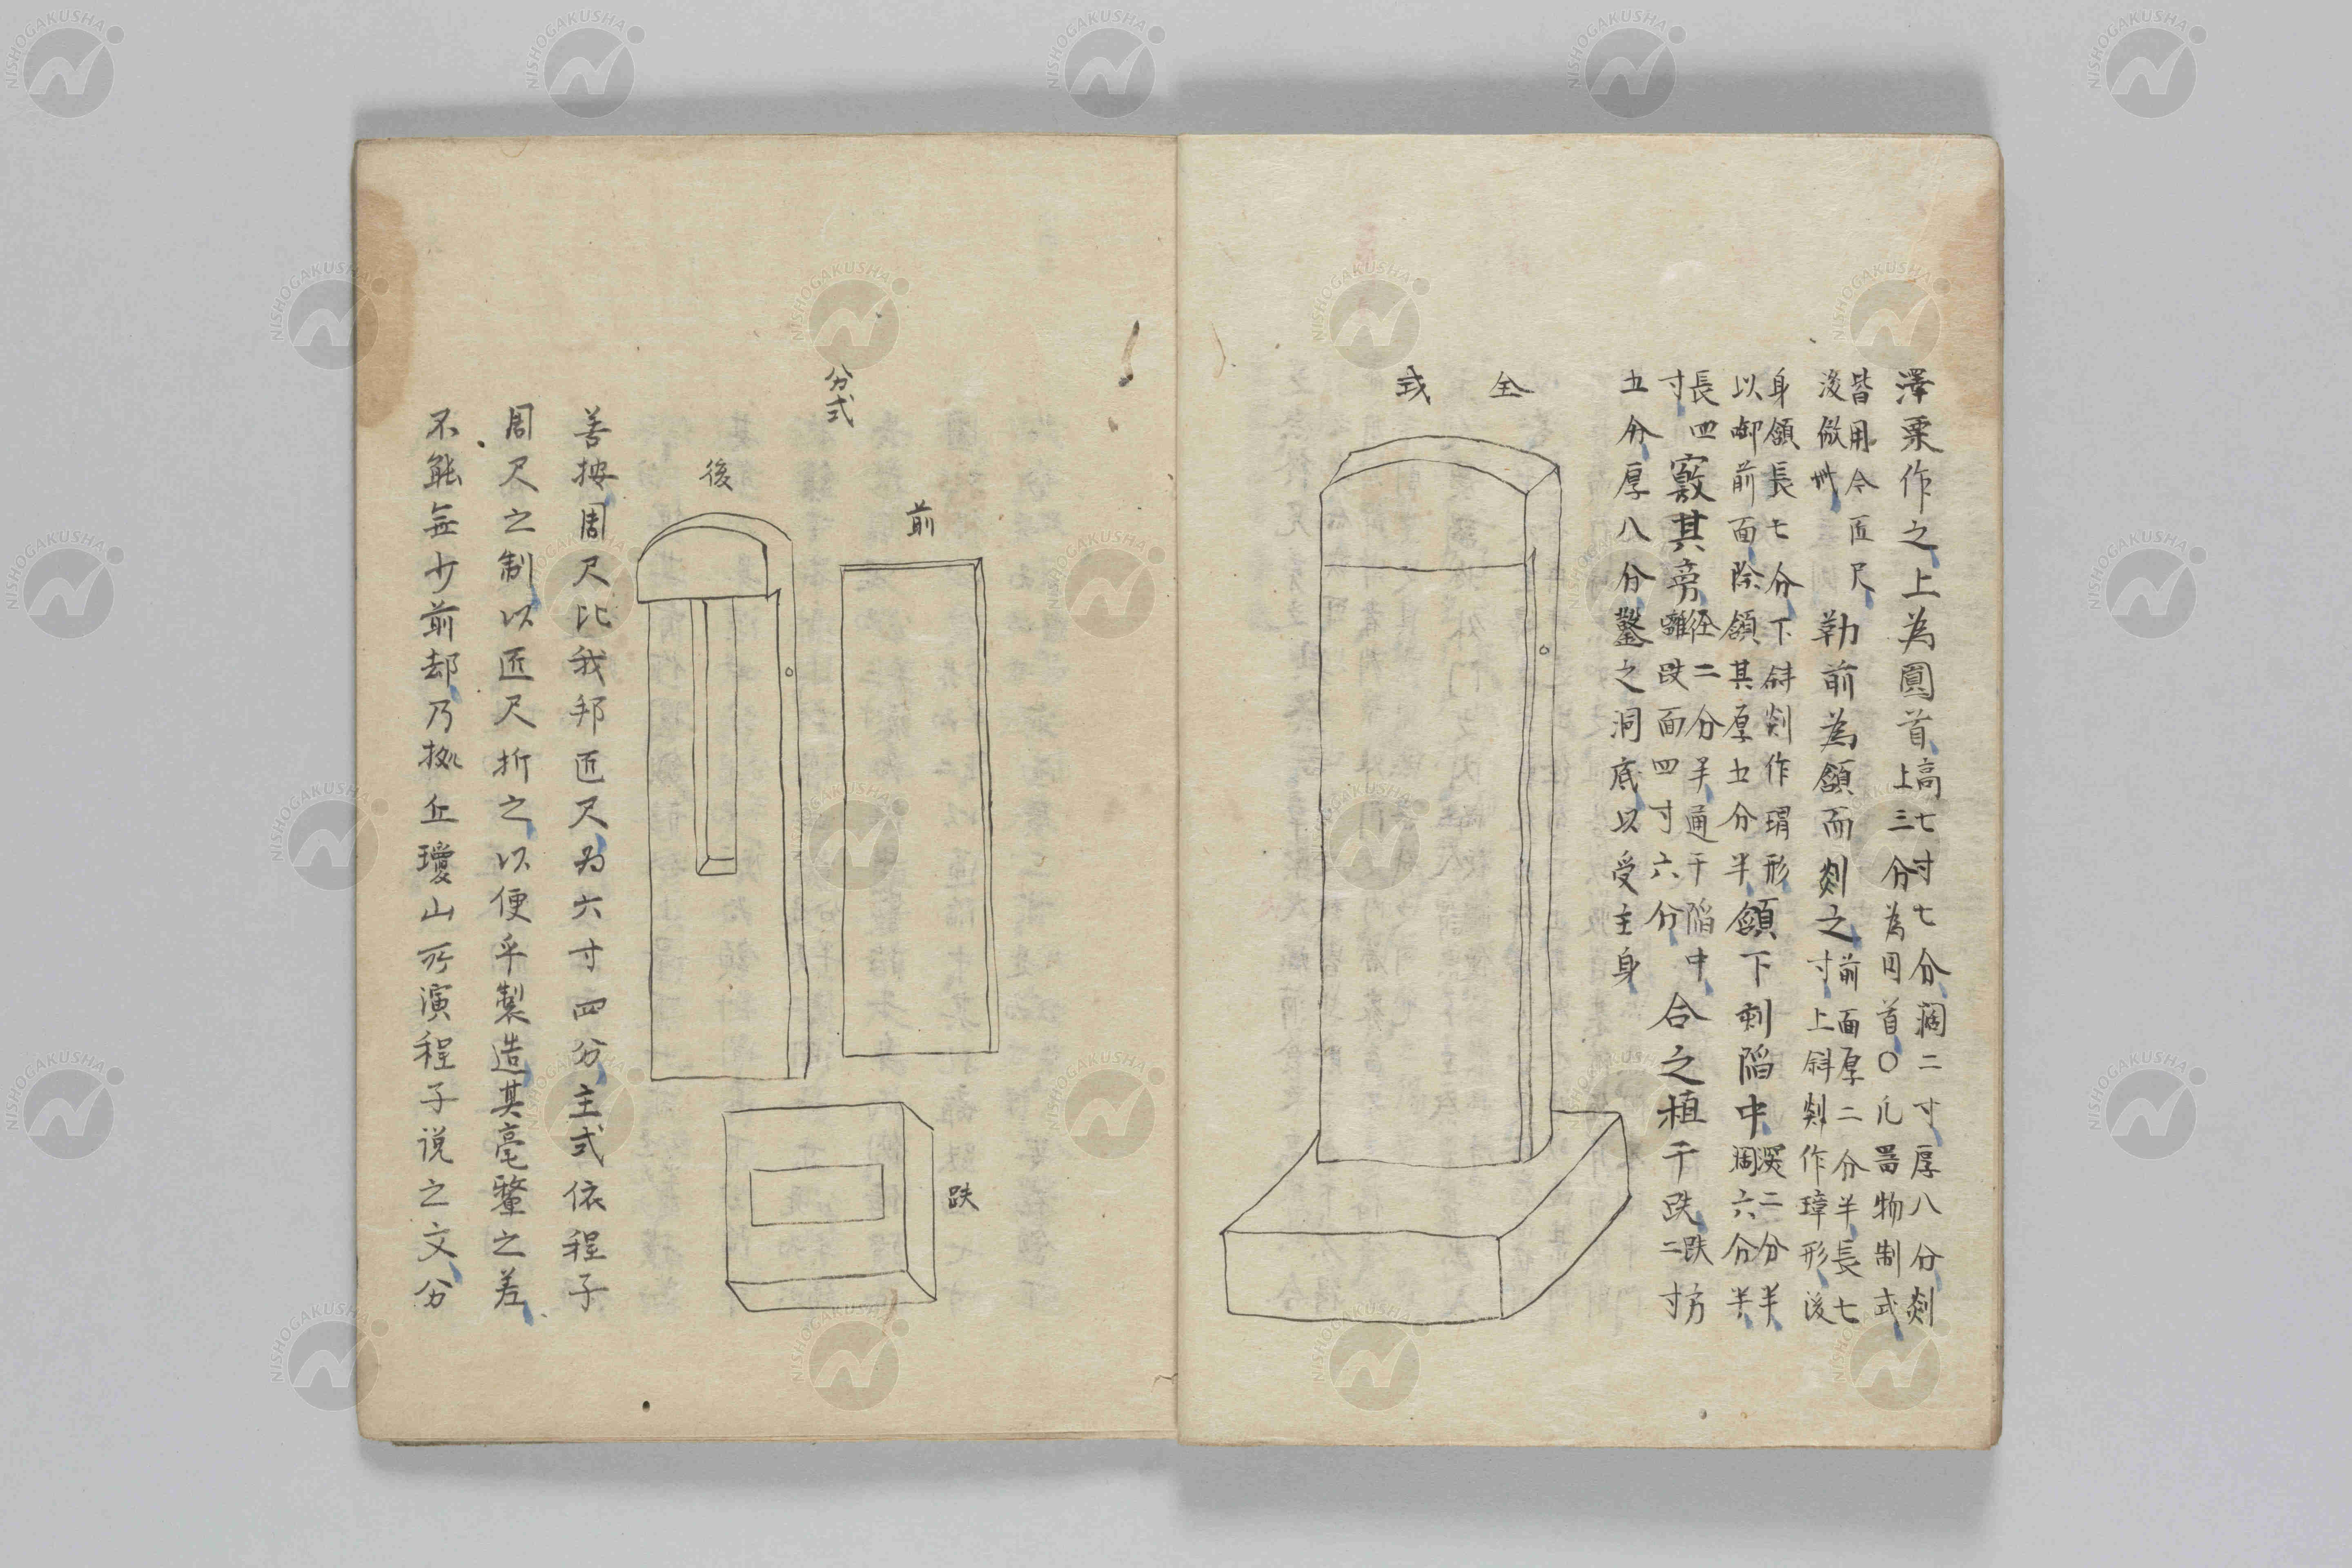 澤栗作之上為圓首高七寸七分濶二寸厚八分剡上三分為円首〇凡器物制式
皆用今匠尺後倣此勒前為頷而剡之前面厚二分半長七寸上斜剡作璋形後
身頷長七分下斜剡作瑁形以卸前面除頷其厚五分半頷下刺陷中深二分半濶六分半
長四寸竅其旁径二分半通于陷中離趺面四寸六分合之植于趺趺方二寸
五分厚八分鑿之洞底以受主身
全式
分式
前
後
趺
善按周尺比我邦匠尺为六寸四分主式依程子
周尺之制以匠尺折之以便乎製造其毫釐之差
不能無少前却乃拠丘瓊山所演程子説之文分
NISHOGAKUSHA